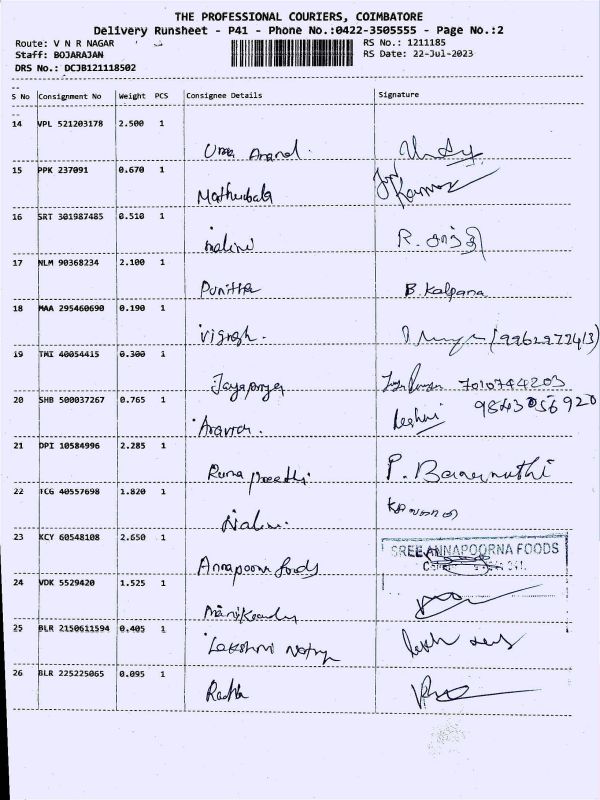 THE PROFESSIONAL COURIERS, COIMBATORE
Delivery Runsheet - P41 - Phone No.:0422-3505555 - Page No.:2
Route: V N R NAGAR
RS No.: 1211185
Staff: BOJARAJAN
RS Date: 22-Jul-2023
DRS No.: DCJB121118502
S No Consignment No Weight PCS Consignee Details Signature
14 VPL 521203178 2.500 1
Uma Anand.
15 PPK 237091 0.670 1
Mathubala
16 SRT 301987485 0.510 1
Nalini R.
17 NLM 90368234 2.100 1
Punitha B. Kalpana
18 MAA 295460690 0.190 1
Vignesh. (9962297243)
19 TMI 40054415 0.300 1
Jayapriya 7010744203
20 SHB 500037267 0.765 1
9843056920
21 DPI 10584996 2.285 1
Rama P.
22 TCG 40557698 1.820 1
Nalini.
23 KCY 60548108 2.650 1
SREE ANNAPOORNA FOODS
Annapoorna foods
24 VDK 5529420 1.525 1
25 BLR 2150611594 0.405 1
Lakshmi
26 BLR 225225065 0.095 1
Radha